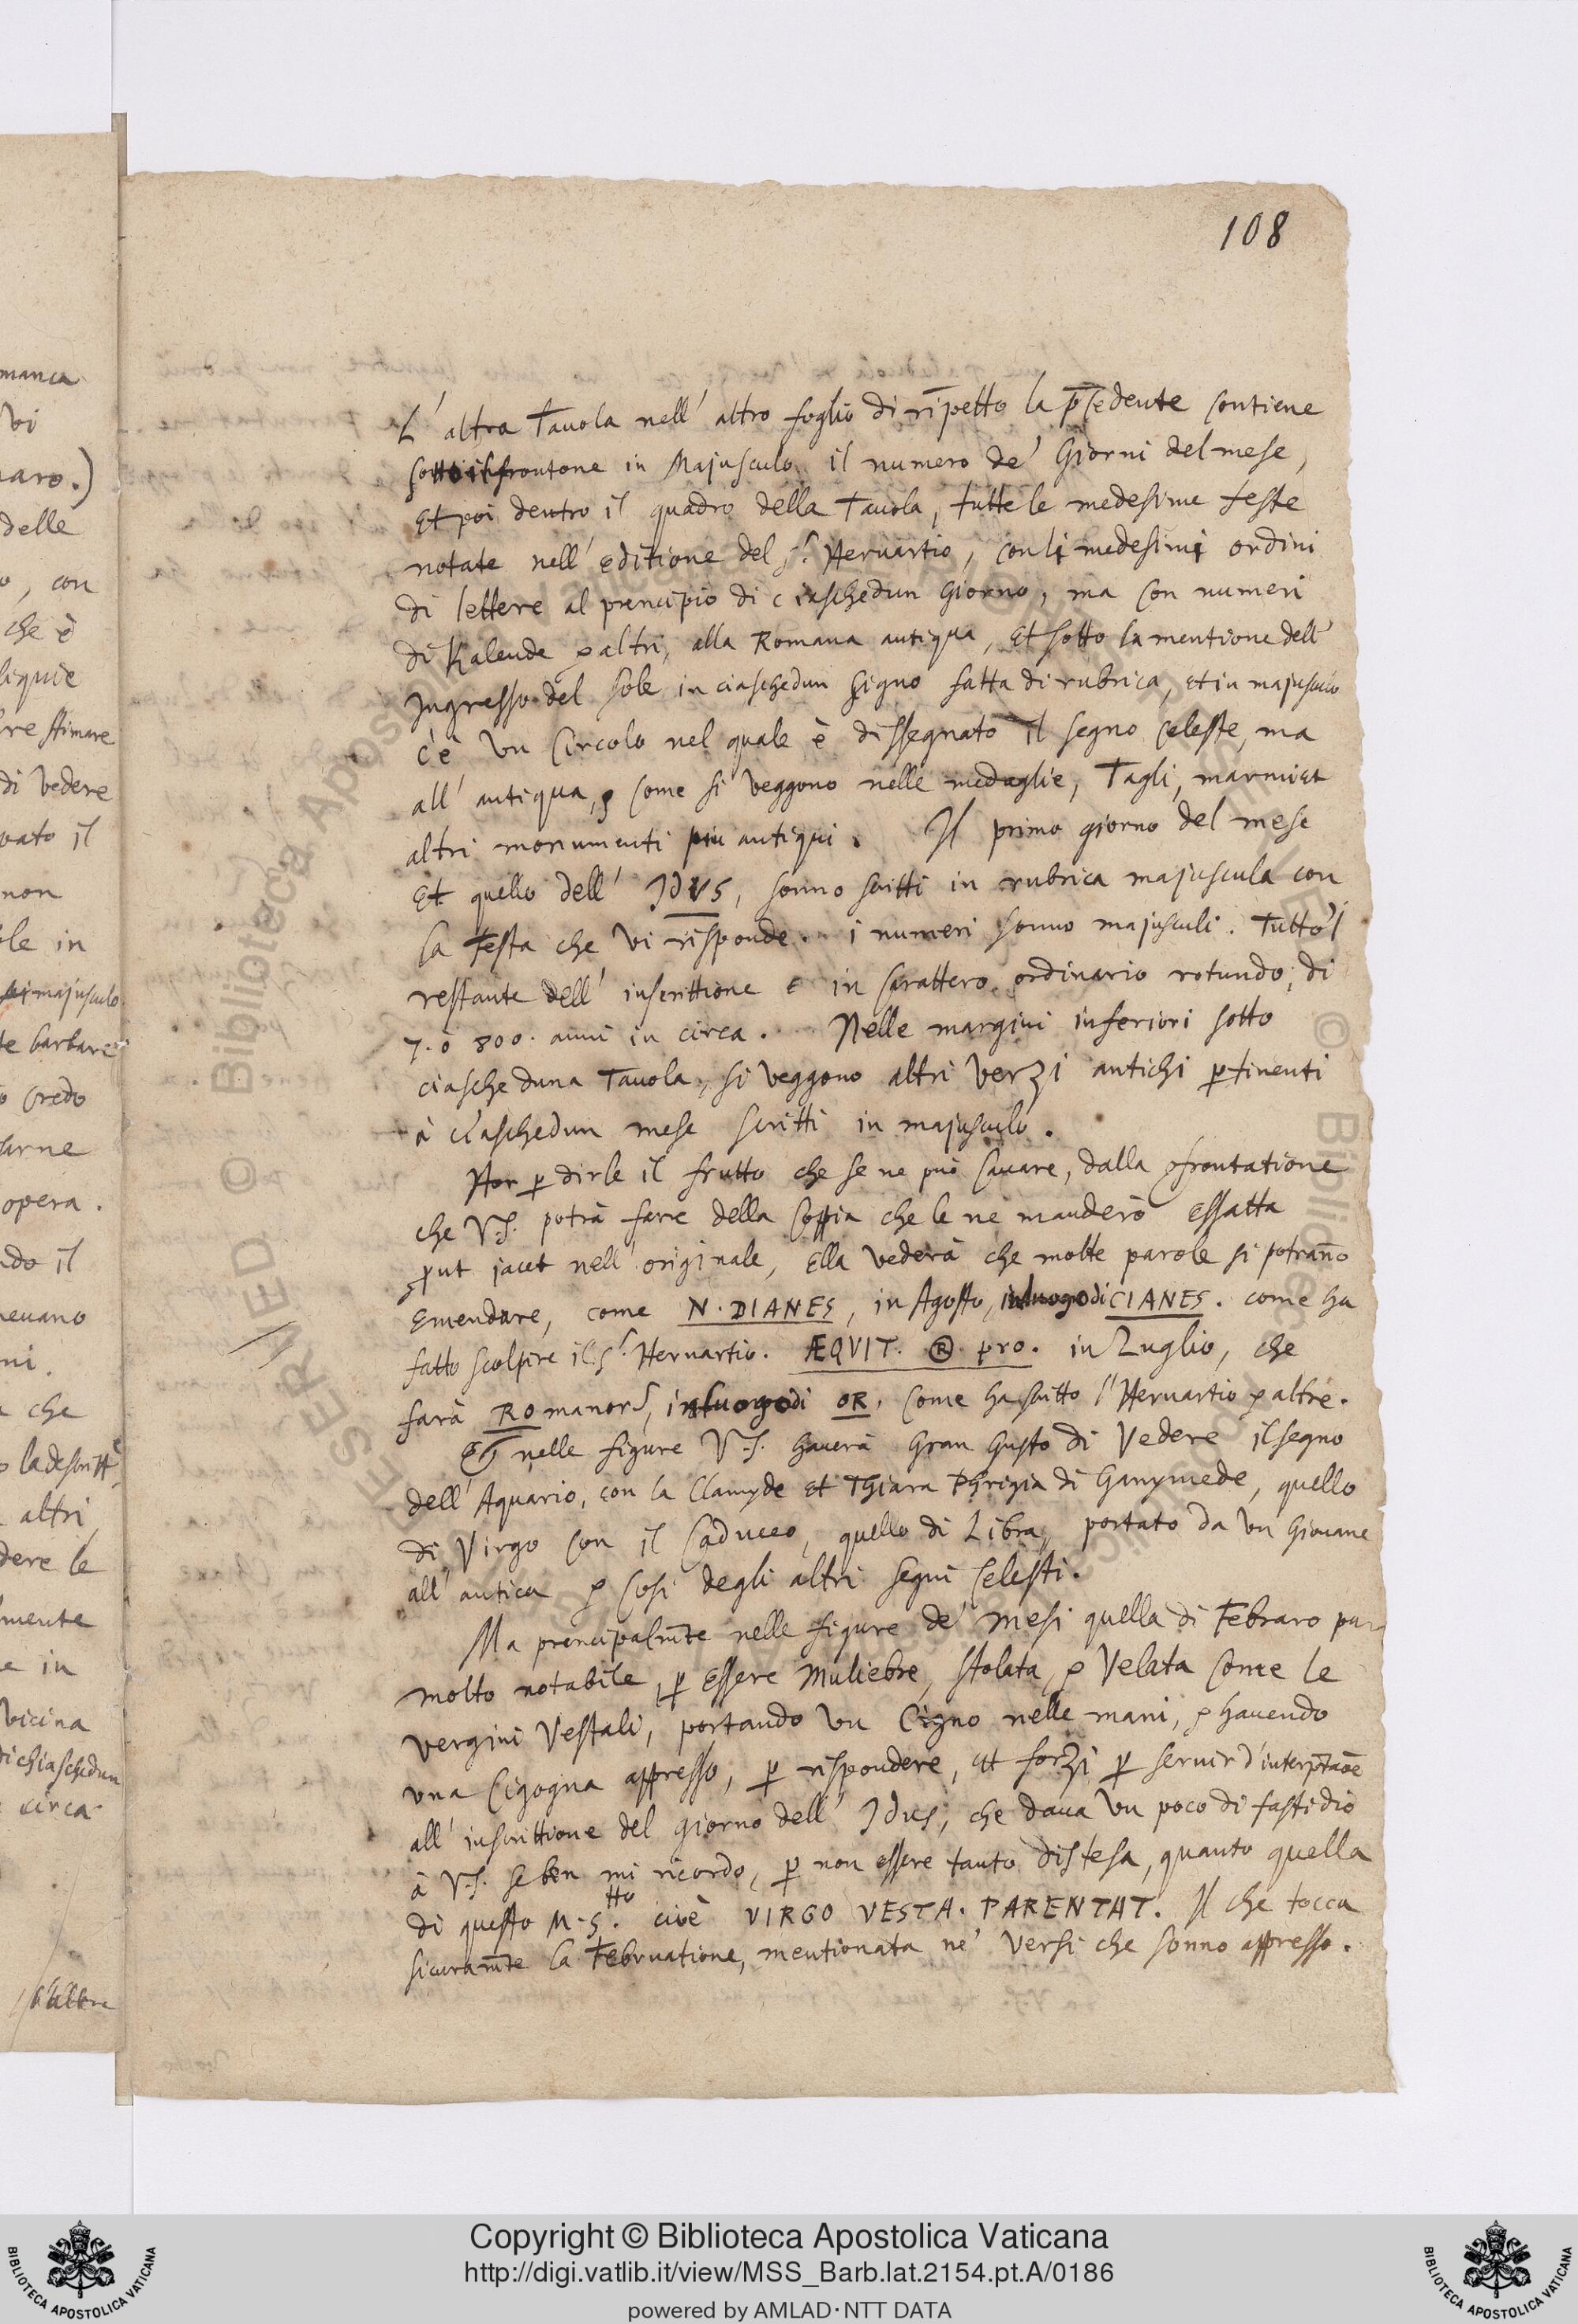 108
manca
vi
aro.)
delle
o, con
che è
liquie
re stimare
di vedere
vato il
non
le in
majusculo
te barbare
o credo
farne
opera.
ndo il
nevano
ni.
a che
o la descritt
altri
dere le
mente
e in
vicina
di chiaschedun
circa
L' altra Tavola nell' altro foglio di ripetto la p̄cedente contiene
sotto il frontone in Majusculo il numero de' Giorni del mese,
Et poi dentro il quadro della Tavola, tutte le medesime feste
notate nell' editione del Sr. Hervartio, con li medesimi ordini
di lettere al prencipio di ciaschedun Giorno, ma con numeri
di Kalende & altri, alla Romana antiqua, Et sotto la mentione dell'
Ingresso del sole in ciaschedun signo fatta di rubrica, et in majusculo
c'è un Circolo nel quale è dissegnato il segno celeste, ma
all' antiqua, & come si veggono nelle medaglie, Tagli, marmi et
altri monumenti piu antiqui. Il primo giorno del mese
Et quello dell' IdVS, sonno scritti in rubrica majuscula con
la Festa che vi risponde. i numeri sonno majusculi. Tutto'l
restante dell' inscrittione è in carattero ordinario rotundo, di
7. ò 800. anni in circa. Nelle margini inferiori sotto
ciascheduna Tavola, si veggono altri verzi antichi ꝑtinenti
à ciaschedun mese scritti in majusculo.
Hor ꝑ dirle il frutto che se ne può cavare, dalla ꝯfrontatione
che V.S. potrà fare della Coppia che le ne manderò essatta
ꝓut jacet nell' originale, Ella vederà che molte parole si potran̄o
Emendare, come N. DIANES, in Agosto, in luogo di CIANES. come ha
fatto scolpire il Sr. Hervartio. ÆQVIT. Ⓡ. pro. in Luglio, che
farà ROmanor, in luogo di OR, come ha scritto l'Hervartio & altre.
Et nelle figure V.S. haverà Gran Gusto di Vedere il segno
dell' Aquario, con la Clamyde et Thiara Phrigia di Ganymede, quello
di Virgo con il Caduceo, quello di Libra, portato da un Giovane
all' antica & cosi degli altri segni celesti.
Ma prencipalm̄te nelle figure de' mesi quella di Febraro par
molto notabile, ꝑ essere Muliebre, stolata, & Velata come le
vergini Vestali, portando un Cigno nelle mani, & havendo
una Cigogna appresso, ꝑ rispondere, et forzi ꝑ servir d'interp̄taōe
all' inscrittione del giorno dell' Idus, che dava un poco di fastidio
à V.S. se ben mi ricordo, ꝑ non essere tanto distesa, quanto quella
di questo M.S.tto cioè VIRGO VESTA. PARENTAT. Il che tocca
sicuram̄te la Februatione, mentionata ne' versi che sonno appresso.
Copyright © Biblioteca Apostolica Vaticana
http://digi.vatlib.it/view/MSS_Barb.lat.2154.pt.A/0186
powered by AMLAD·NTT DATA
BIBLIOTECA APOSTOLICA VATICANA
BIBLIOTECA APOSTOLICA VATICANA